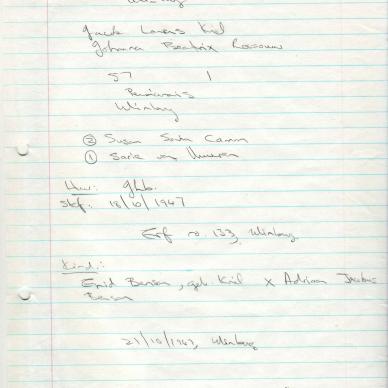 Winburg
Jacob Lourens Kriel
Johanna Beatrix Rossouw
57 1
Winburg
② Susan
① Sarie van
Huw: Ghb.
Skf: 18/10/1947
Erf no. 133, Winburg
Kind.:
Enid Benson, geb. Kriel x Adriaan Jacobus
Benson
21/10/1947, Winburg